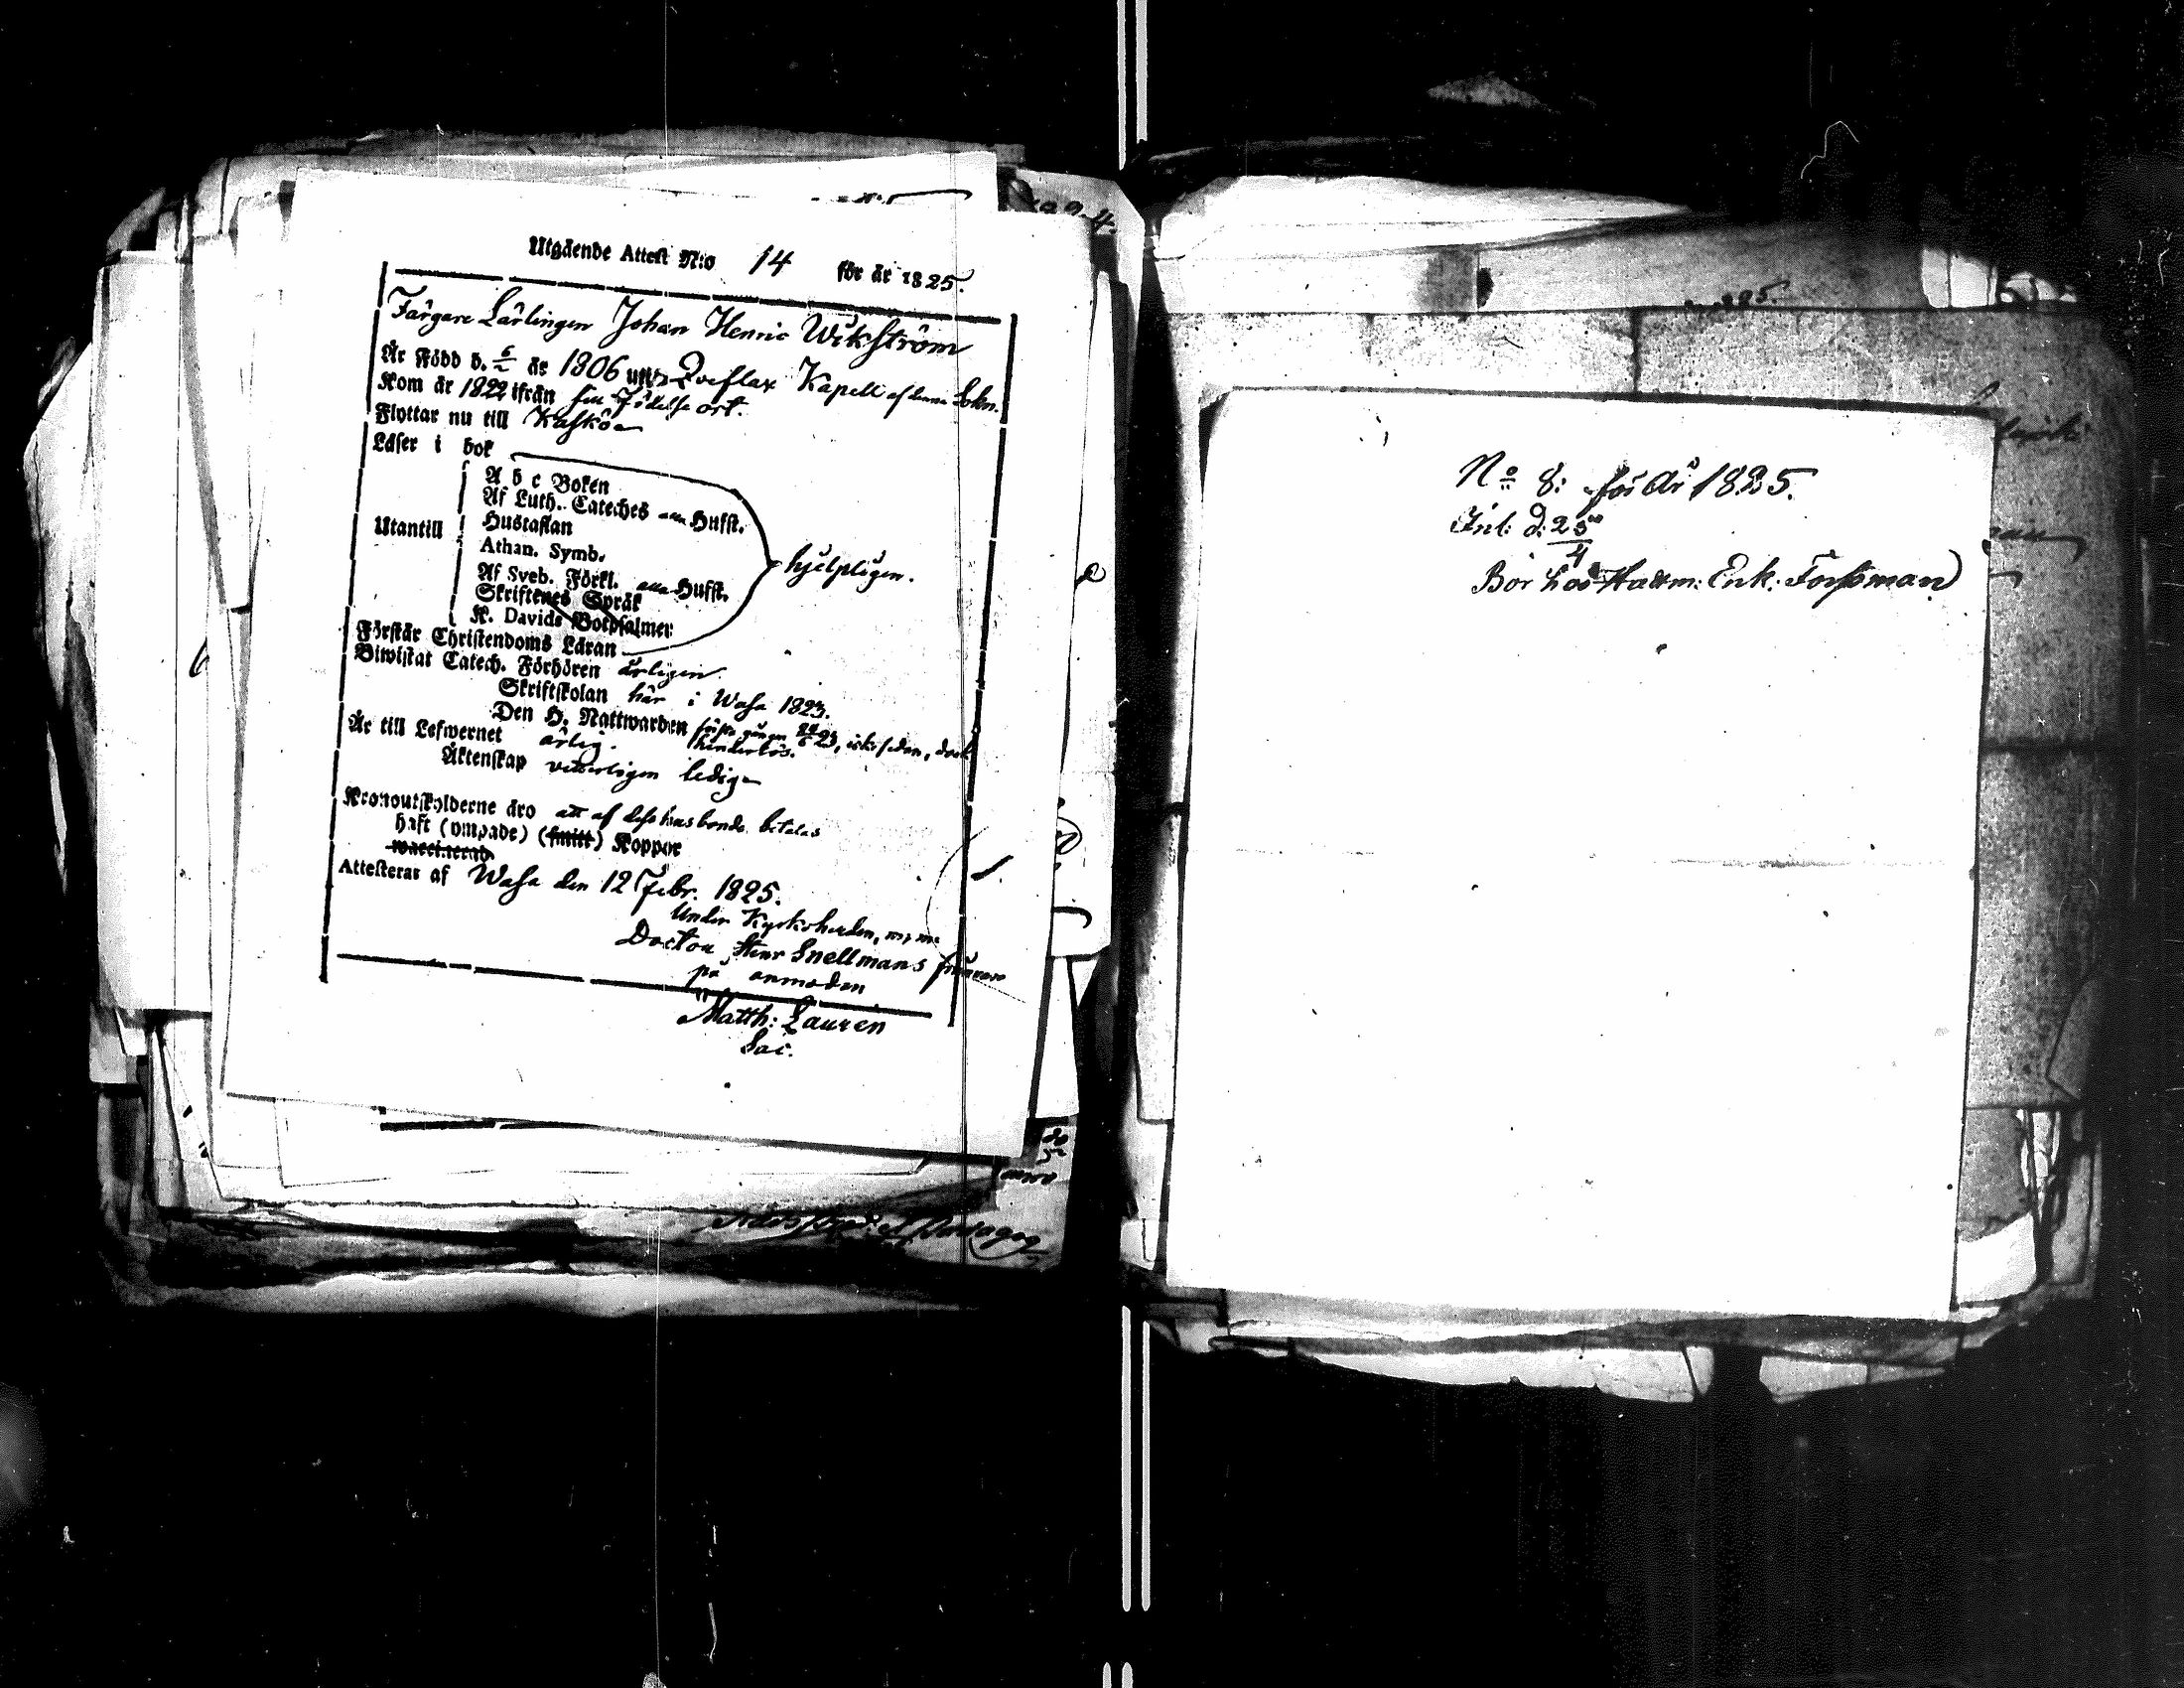 Utgående Attest N:o 14 för år 1825.
Färgare Lärlingen Johan Henric Wikström
Är Född d. år 1806 uti Qveflax Kapell af denna Sokn.
Kom år 1822 ifrån sin Födelse ort.
Flyttar nu till Kaskö
Läser i bok
A b c Boken
Af Luth. Cateches Husst.
Utantill Hustaflan
Athan. Symb.
hjelpligen.
Af Sveb. Förkl. Husst.
Skriftenes Språk
K. Davids Botpsalmer
Förstår Christendoms Läran
Biwistat Catech. Förhören årligen.
Skriftskolan här i Wasa 1823.
Den H. Nattwarden första gången 23, icke sedan, dock
hinderlös.
Är till Lefwernet ärlig.
Äktenskap vetterligen ledig
Kronoutskylderne äro att af dess husbonde betalas
haft (ympade) (smitt) Koppor
waccinerad
Attesterar af Wasa den 12 Febr. 1825.
Under Kyrkoherden, m, m.
Doctor Herr Snellmans frånvaro
på anmodan
Matth: Lauren
Sac.
No 8: för År 1825.
Inl: d: 25
4
Bor hos Hattm: Enk: Forssman